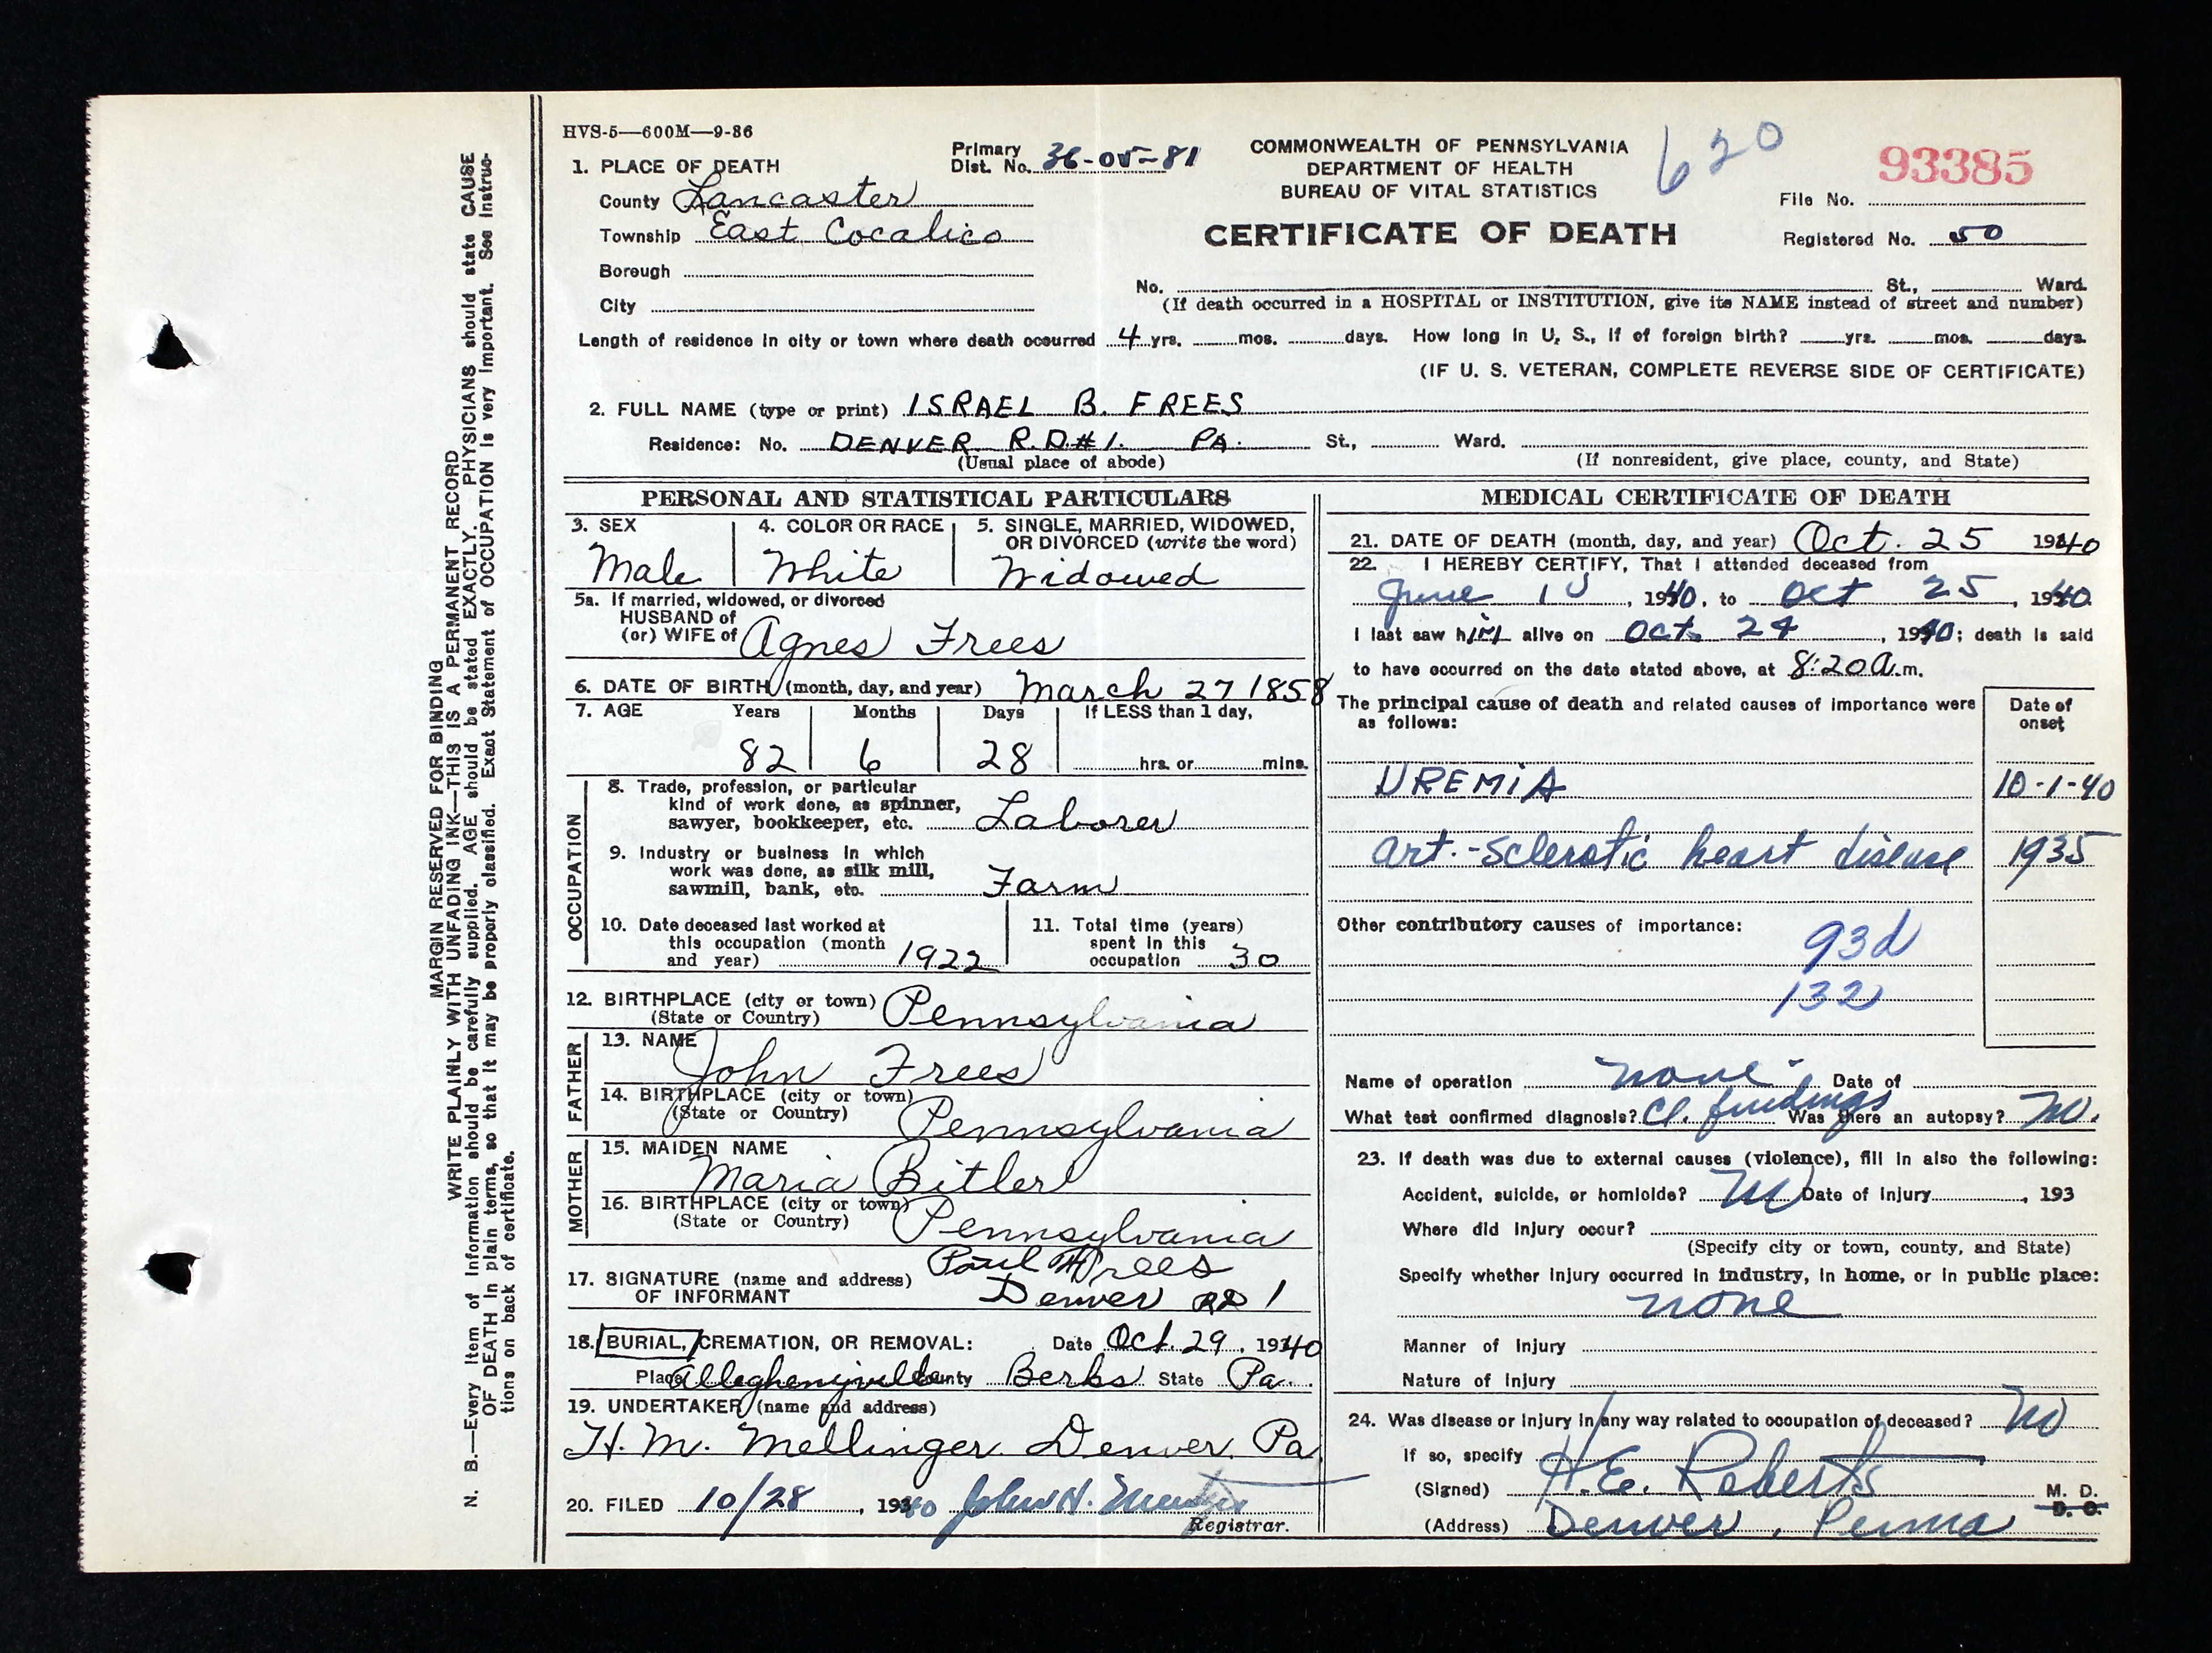 MARGIN RESERVED FOR BINDING
WRITE PLAINLY WITH UNFADING INK—THIS IS A PERMANENT RECORD
N. B.—Every item of information should be carefully supplied. AGE should be stated EXACTLY. PHYSICIANS should state CAUSE
OF DEATH in plain terms, so that it may be properly classified. Exact Statement of OCCUPATION is very important. See instruc-
tions on back of certificate.
HVS-5—600M—9-36
1. PLACE OF DEATH
County Lancaster
Township East Cocalico
Borough
City
Primary
Dist. No. 36-05-81
COMMONWEALTH OF PENNSYLVANIA
DEPARTMENT OF HEALTH
BUREAU OF VITAL STATISTICS
CERTIFICATE OF DEATH
620
93385
File No.
Registered No. 50
No. St., Ward.
(If death occurred in a HOSPITAL or INSTITUTION, give its NAME instead of street and number)
Length of residence in city or town where death occurred 4 yrs. mos. days. How long in U. S., if of foreign birth? yrs. mos. days.
(IF U. S. VETERAN, COMPLETE REVERSE SIDE OF CERTIFICATE)
2. FULL NAME (type or print) ISRAEL B. FREES
Residence: No. DENVER R.D.#1. PA. St., Ward.
(Usual place of abode) (If nonresident, give place, county, and State)
PERSONAL AND STATISTICAL PARTICULARS
3. SEX
Male
4. COLOR OR RACE
White
5. SINGLE, MARRIED, WIDOWED,
OR DIVORCED (write the word)
Widowed
5a. If married, widowed, or divorced
HUSBAND of
(or) WIFE of Agnes Frees
6. DATE OF BIRTH (month, day, and year) March 27 1858
7. AGE Years Months Days If LESS than 1 day,
82 6 28 hrs. or mins.
OCCUPATION
8. Trade, profession, or particular
kind of work done, as spinner,
sawyer, bookkeeper, etc. Laborer
9. Industry or business in which
work was done, as silk mill,
sawmill, bank, etc. Farm
10. Date deceased last worked at
this occupation (month
and year) 1922
11. Total time (years)
spent in this
occupation 30
12. BIRTHPLACE (city or town) Pennsylvania
(State or Country)
FATHER
13. NAME
John Frees
14. BIRTHPLACE (city or town)
(State or Country) Pennsylvania
MOTHER
15. MAIDEN NAME
Maria Bitler
16. BIRTHPLACE (city or town)
(State or Country) Pennsylvania
17. SIGNATURE (name and address) Paul Frees
OF INFORMANT Denver RD 1
18. BURIAL, CREMATION, OR REMOVAL: Date Oct. 29, 1940
Place Alleghenyville County Berks State Pa.
19. UNDERTAKER (name and address)
H. M. Mellinger Denver, Pa
20. FILED 10/28, 1940 John H.
Registrar.
MEDICAL CERTIFICATE OF DEATH
21. DATE OF DEATH (month, day, and year) Oct. 25 1940
22. I HEREBY CERTIFY, That I attended deceased from
June, 1940, to Oct 25, 1940.
I last saw him alive on Oct. 24, 1940; death is said
to have occurred on the date stated above, at 8:20 a.m.
The principal cause of death and related causes of importance were
as follows:
Date of
onset
UREMIA 10-1-40
art.-sclerotic heart disease 1935
Other contributory causes of importance:
93d
132
Name of operation none Date of
What test confirmed diagnosis? Cl. findings Was there an autopsy? No.
23. If death was due to external causes (violence), fill in also the following:
Accident, suicide, or homicide? No Date of injury , 193
Where did injury occur?
(Specify city or town, county, and State)
Specify whether injury occurred in industry, in home, or in public place:
none
Manner of injury
Nature of injury
24. Was disease or injury in any way related to occupation of deceased? No
If so, specify
(Signed) H.E. Roberts M. D.
D. O.
(Address) Denver, Penna